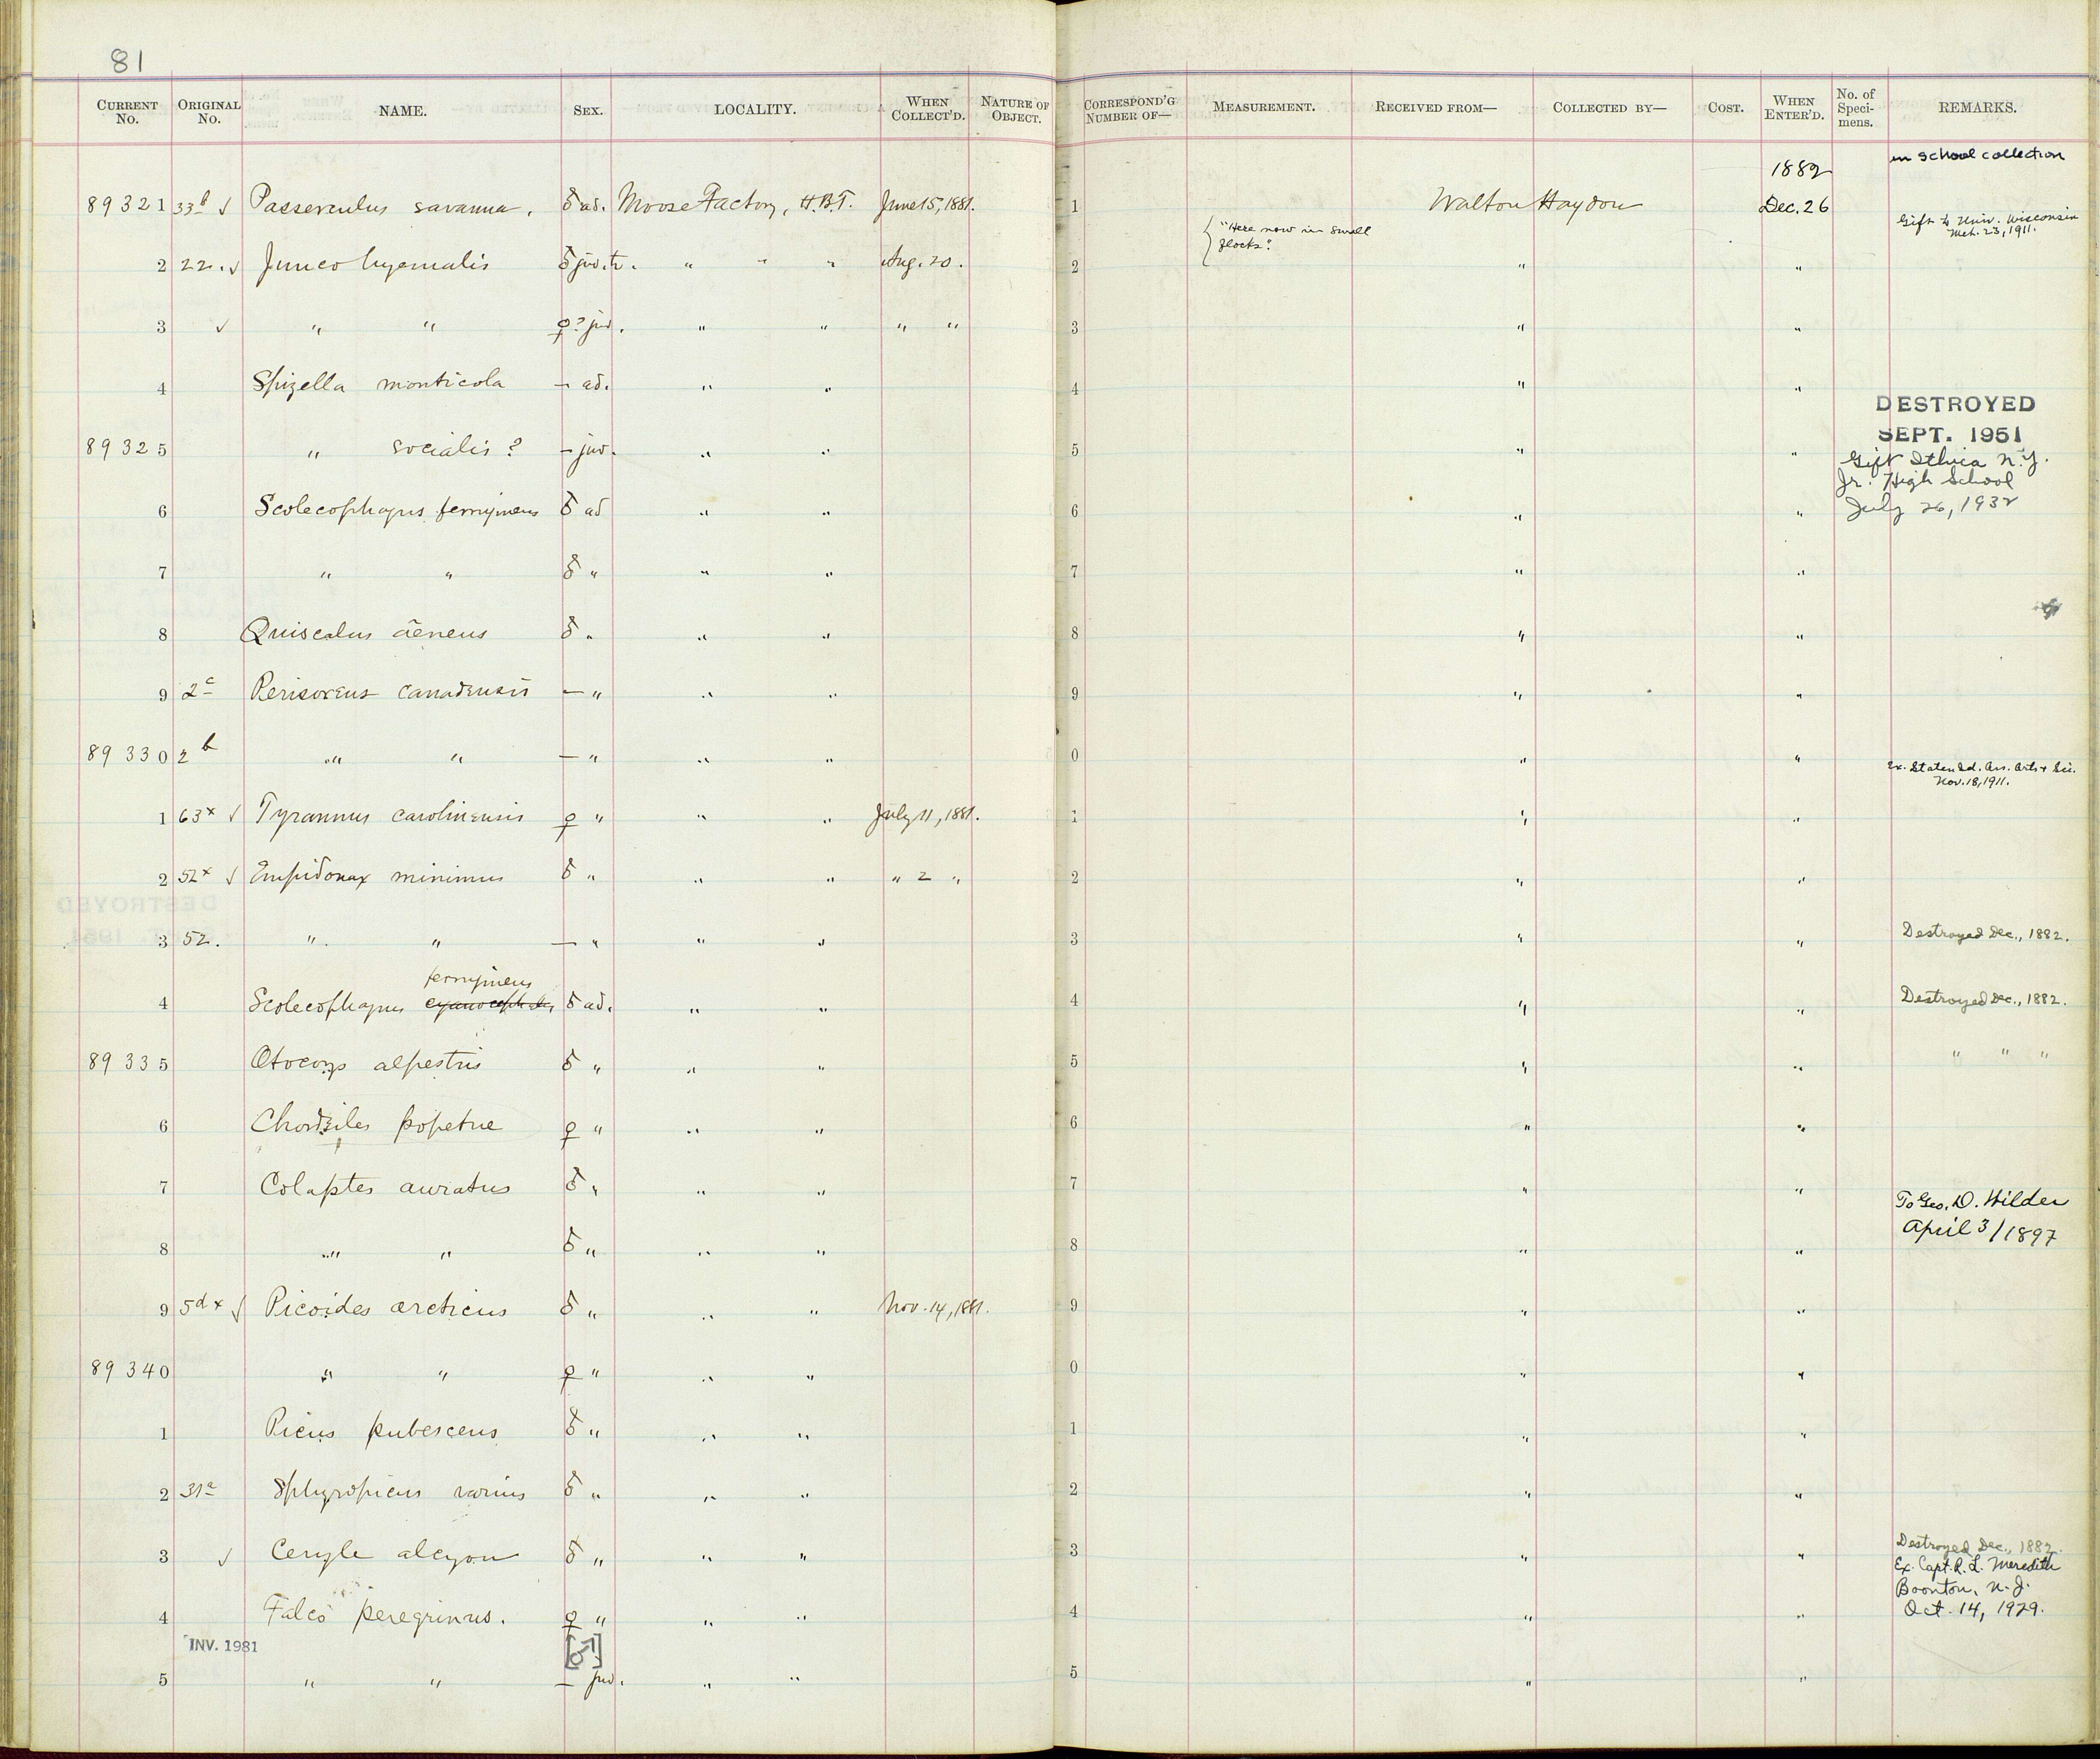 81
CURRENT No. ORIGINAL No. NAME. SEX. LOCALITY. WHEN COLLECT'D. NATURE OF OBJECT. CORRESPOND'G NUMBER OF— MEASUREMENT. RECEIVED FROM— COLLECTED BY— COST. WHEN ENTER'D. No. of Speci-mens. REMARKS.
1882 in school collection
89321 33b ✓ Passerculus savanna. ♂ ad. Moose Factory, H.B.T. June 15, 1881. 1 Walton Haydon Dec. 26 Gift to Univ. Wisconsin Mch. 23, 1911.
"Here now in small flocks."
2 22. ✓ Junco hyemalis ♂ juv. tr. " " " Aug. 20. 2 " "
3 ✓ " " ♀? juv. " " " " 3 " "
4 Spizella monticola — ad. " " 4 " "
DESTROYED
SEPT. 1951
89325 " socialis? — juv. " " 5 " " Gift Ithica N.Y.
Jr. High School
6 Scolecophagus ferrugineus ♂ ad " " 6 " " July 26, 1932
7 " " ♂ " " " 7 " "
8 Quiscalus æneus ♂ " " " 8 " "
9 2c Perisoreus canadensis — " " " 9 " "
89330 2b " " — " " " 0 " " Ex. Staten Isd. Ass. Arts & Sci.
Nov. 18, 1911.
1 63x ✓ Tyrannus carolinensis ♀ " " " July 11, 1881. 1 " "
2 52x ✓ Empidonax minimus ♂ " " " " 2 " 2 " "
3 52. " " — " " " 3 " " Destroyed Dec., 1882.
ferrugineus
4 Scolecophagus cyanocephalus ♂ ad. " " 4 " " Destroyed Dec., 1882.
89335 Otocorys alpestris ♂ " " " 5 " " " " "
6 Chordeiles popetue ♀ " " " 6 " "
7 Colaptes auratus ♂ " " " 7 " " To Geo. D. Wilder
April 3/1897
8 " " ♂ " " " 8 " "
9 5d x ✓ Picoides arcticus ♂ " " " Nov. 14, 1881. 9 " "
89340 " " ♀ " " " 0 " "
1 Picus pubescens ♂ " " " 1 " "
2 31a Sphyropicus varius ♂ " " " 2 " "
3 ✓ Ceryle alcyon ♂ " " " 3 " " Destroyed Dec., 1882.
Ex. Capt. R. L. Meredith
Boonton, N.J.
4 Falco peregrinus. ♀ " " " 4 " " Oct. 14, 1929.
INV. 1981 [♂]
5 " " — juv. " " 5 " "